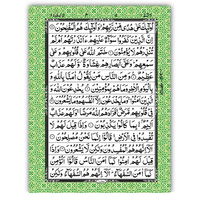 اُولٰٓئِكَ عَلٰى هُدًى مِّنْ رَّبِّهِمْ وَاُولٰٓئِكَ هُمُ الْمُفْلِحُوْنَ
اِنَّ الَّذِيْنَ كَفَرُوْا سَوَآءٌ عَلَيْهِمْ ءَاَنْذَرْتَهُمْ اَمْ
لَمْ تُنْذِرْهُمْ لَا يُؤْمِنُوْنَ خَتَمَ اللّٰهُ عَلٰى قُلُوْبِهِمْ وَ
عَلٰى سَمْعِهِمْ وَعَلٰٓى اَبْصَارِهِمْ غِشَاوَةٌ وَّلَهُمْ عَذَابٌ
عَظِيْمٌ وَمِنَ النَّاسِ مَنْ يَّقُوْلُ اٰمَنَّا بِاللّٰهِ وَ
بِالْيَوْمِ الْاٰخِرِ وَمَا هُمْ بِمُؤْمِنِيْنَ يُخٰدِعُوْنَ اللّٰهَ
وَالَّذِيْنَ اٰمَنُوْا وَمَا يَخْدَعُوْنَ اِلَّآ اَنْفُسَهُمْ وَمَا يَشْعُرُوْنَ
فِيْ قُلُوْبِهِمْ مَّرَضٌ فَزَادَهُمُ اللّٰهُ مَرَضًا وَلَهُمْ عَذَابٌ
اَلِيْمٌ بِمَا كَانُوْا يَكْذِبُوْنَ وَاِذَا قِيْلَ لَهُمْ لَا
تُفْسِدُوْا فِى الْاَرْضِ قَالُوْٓا اِنَّمَا نَحْنُ مُصْلِحُوْنَ
اَلَآ اِنَّهُمْ هُمُ الْمُفْسِدُوْنَ وَلٰكِنْ لَّا يَشْعُرُوْنَ وَاِذَا
قِيْلَ لَهُمْ اٰمِنُوْا كَمَآ اٰمَنَ النَّاسُ قَالُوْٓا اَنُؤْمِنُ
كَمَآ اٰمَنَ السُّفَهَآءُ اَلَآ اِنَّهُمْ هُمُ السُّفَهَآءُ وَلٰكِنْ